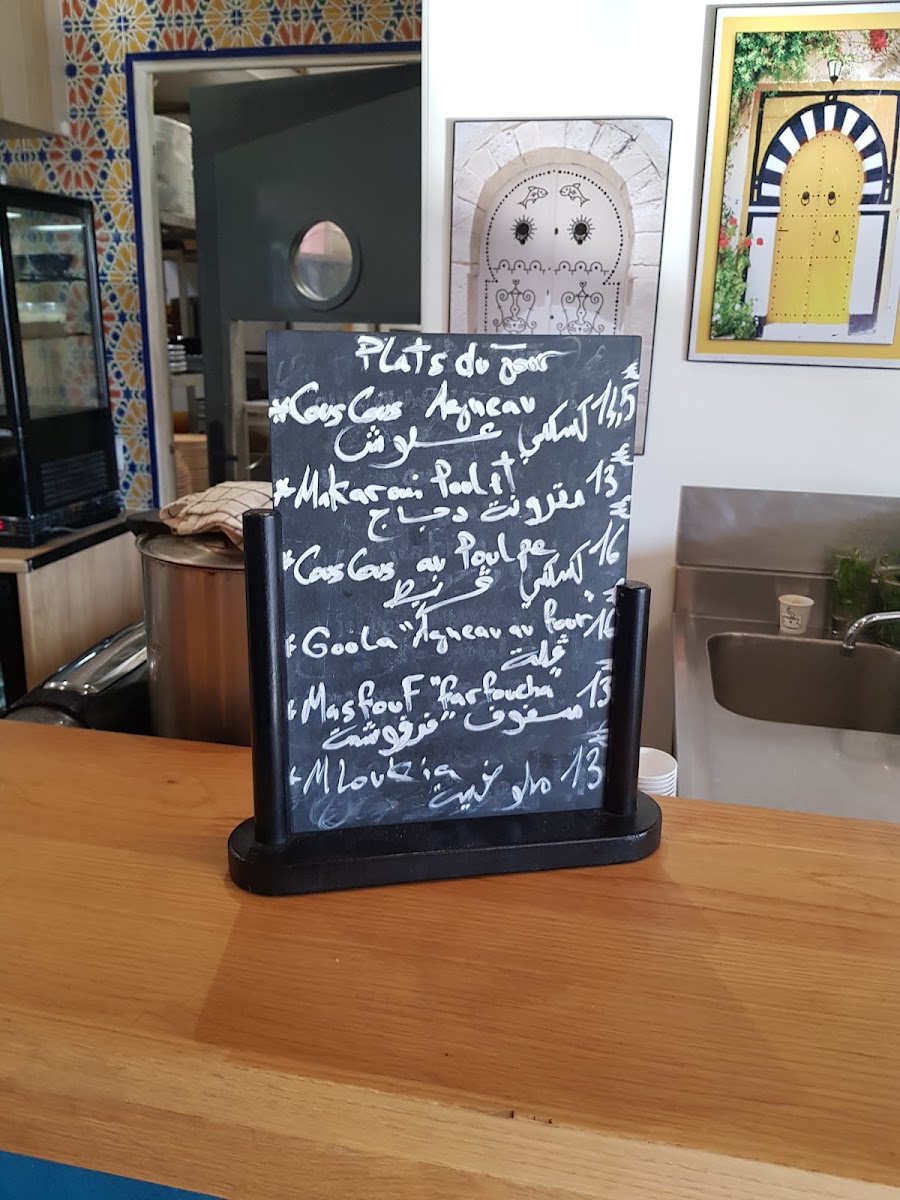 Plats du Jour
*CousCous Agneau 13,5 €
كسكسي علوش
*Makaroni Poulet 13 €
مقرونة دجاج
*CousCous au Poulpe 16 €
كسكسي قرنيط
*Goola "Agneau au Four" 16 €
ڨلة
*Masfouf "farfoucha" 13
مسفوف "فرفوشة"
*Mloukia 13 €
ملوخية